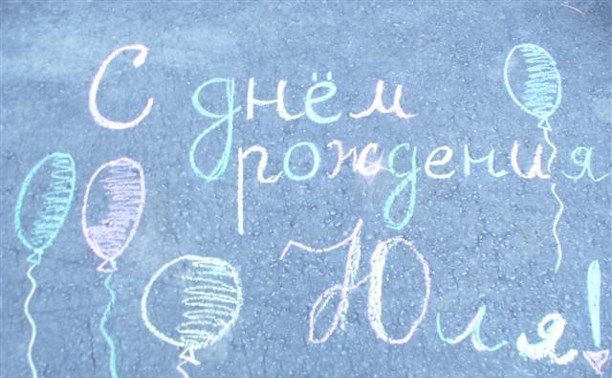 С днём
рождения
Юля!